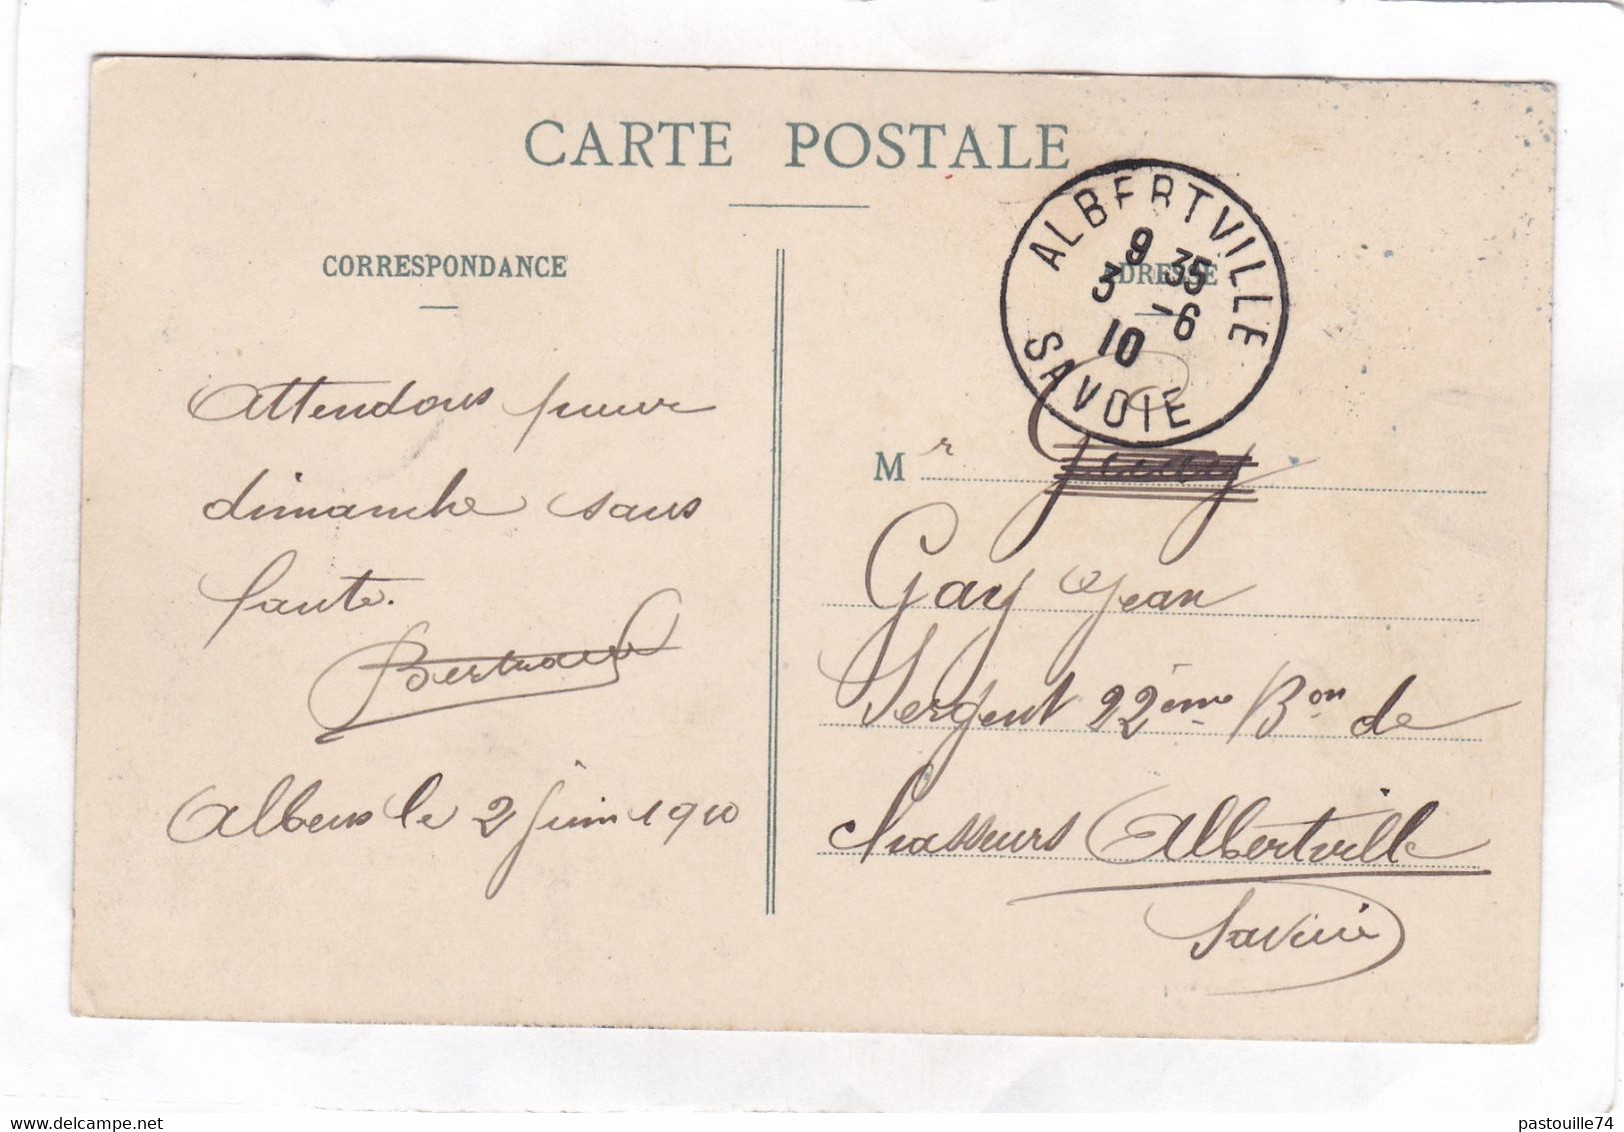 CARTE POSTALE
CORRESPONDANCE
Attendons pour
dimanche sans
faute.
Bertrand
Albens le 2 juin 1910
ADRESSE
ALBERTVILLE
9 35
3 -6
10
SAVOIE
M r
Gay Jean
Sergent 22ème Bon de
Chasseurs Albertville
Savoie
pastouille74